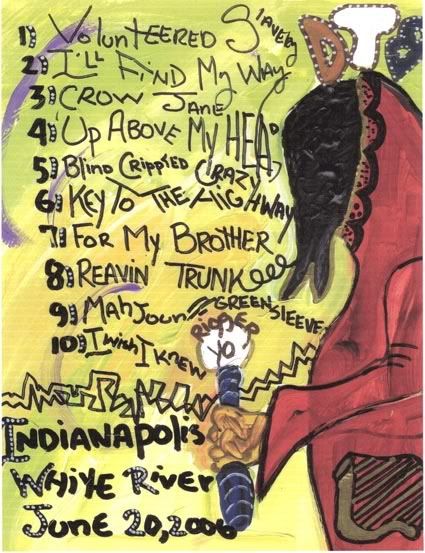 DTB
1) VOLUNTEERED Slavery
2) I'll Find My WAY
3) CROW JANE
4) UP ABOVE MY HEAD
5) Blind Crippled CRAZY
6) KEY TO THE HIGHWAY
7) FOR MY BROTHER
8) REAVIN TRUNK
9) MahJoun // GREENSLEEVES
10) I wish I KNEW
YO
INDIANAPOLIS
WHITE RIVER
JUNE 20, 2006